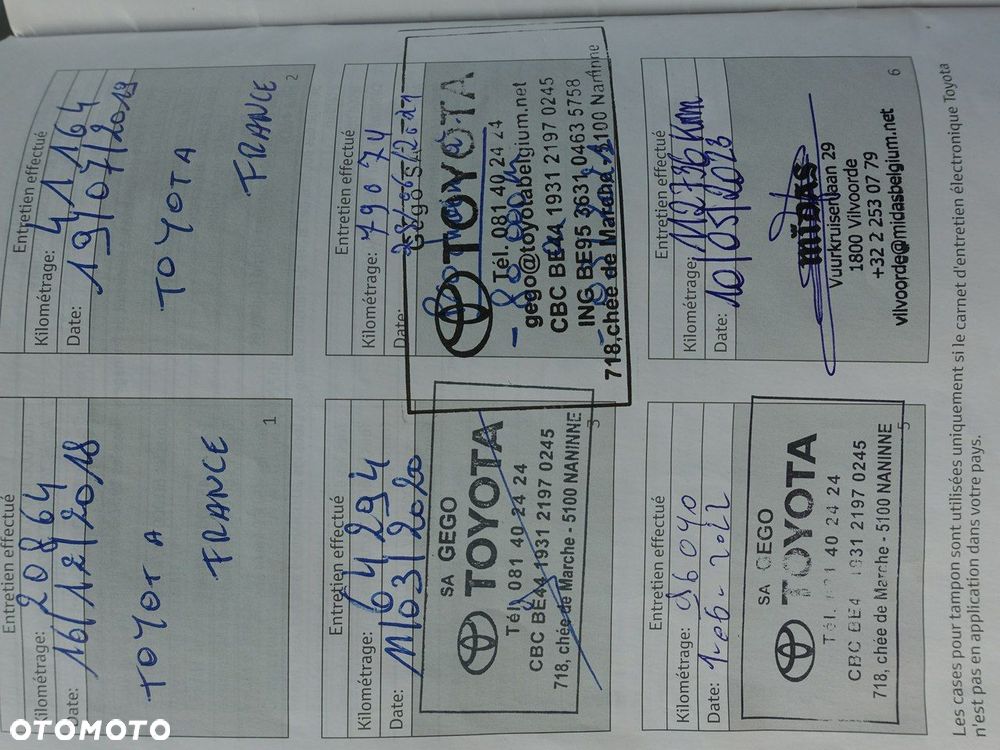 Entretien effectué
Kilométrage: 20864
Date: 16/12/2018
TOYOTA
FRANCE
1
Entretien effectué
Kilométrage: 41164
Date: 19/07/2019
TOYOTA
FRANCE
2
Entretien effectué
Kilométrage: 64294
Date: 11/03/2020
SA GEGO
TOYOTA
Tél. 081 40 24 24
CBC BE44 1931 2197 0245
718, chée de Marche - 5100 NANINNE
3
Entretien effectué
Kilométrage: 79074
Date:
Gego SA
TOYOTA
Tél. 081 40 24 24
gego@toyotabelgium.net
CBC BE44 1931 2197 0245
ING BE95 3631 0463 5758
718, chée de Marche 5100 Naninne
Entretien effectué
Kilométrage: 96040
Date: 1-06-2022
SA GEGO
TOYOTA
Tél. 081 40 24 24
CBC BE44 1931 2197 0245
718, chée de Marche - 5100 NANINNE
5
Entretien effectué
Kilométrage: 112736 km
Date: 10/05/2023
MIDAS
Vuurkruisenlaan 29
1800 Vilvoorde
+32 2 253 07 79
vilvoorde@midasbelgium.net
6
Les cases pour tampon sont utilisées uniquement si le carnet d'entretien électronique Toyota
n'est pas en application dans votre pays.
OTOMOTO